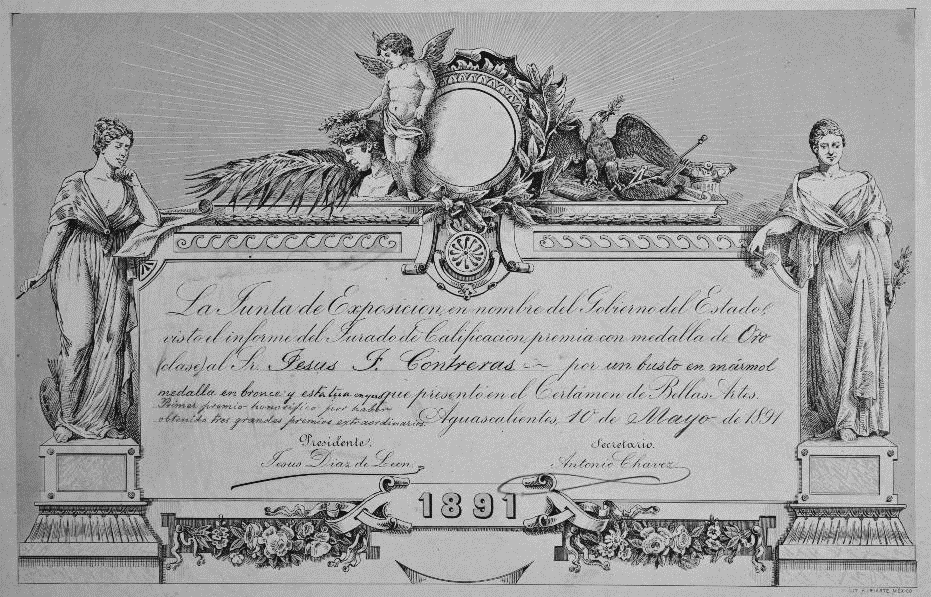 La Junta de Exposicion, en nombre del Gobierno del Estado,
visto el informe del Jurado de Calificacion, premia con medalla de Oro
(clase) al Sr. Jesus F. Contreras por un busto en mármol
medalla en bronce y estatua en yeso que presentó en el Certámen de Bellas Artes.
Primer premio honorífico por haber
obtenido tres grandes premios extraordinarios.
Aguascalientes, 10 de Mayo de 1891
Presidente. Secretario.
Jesus Diaz de Leon. Antonio Chavez
1891
LIT. F. IRIARTE, MEXICO